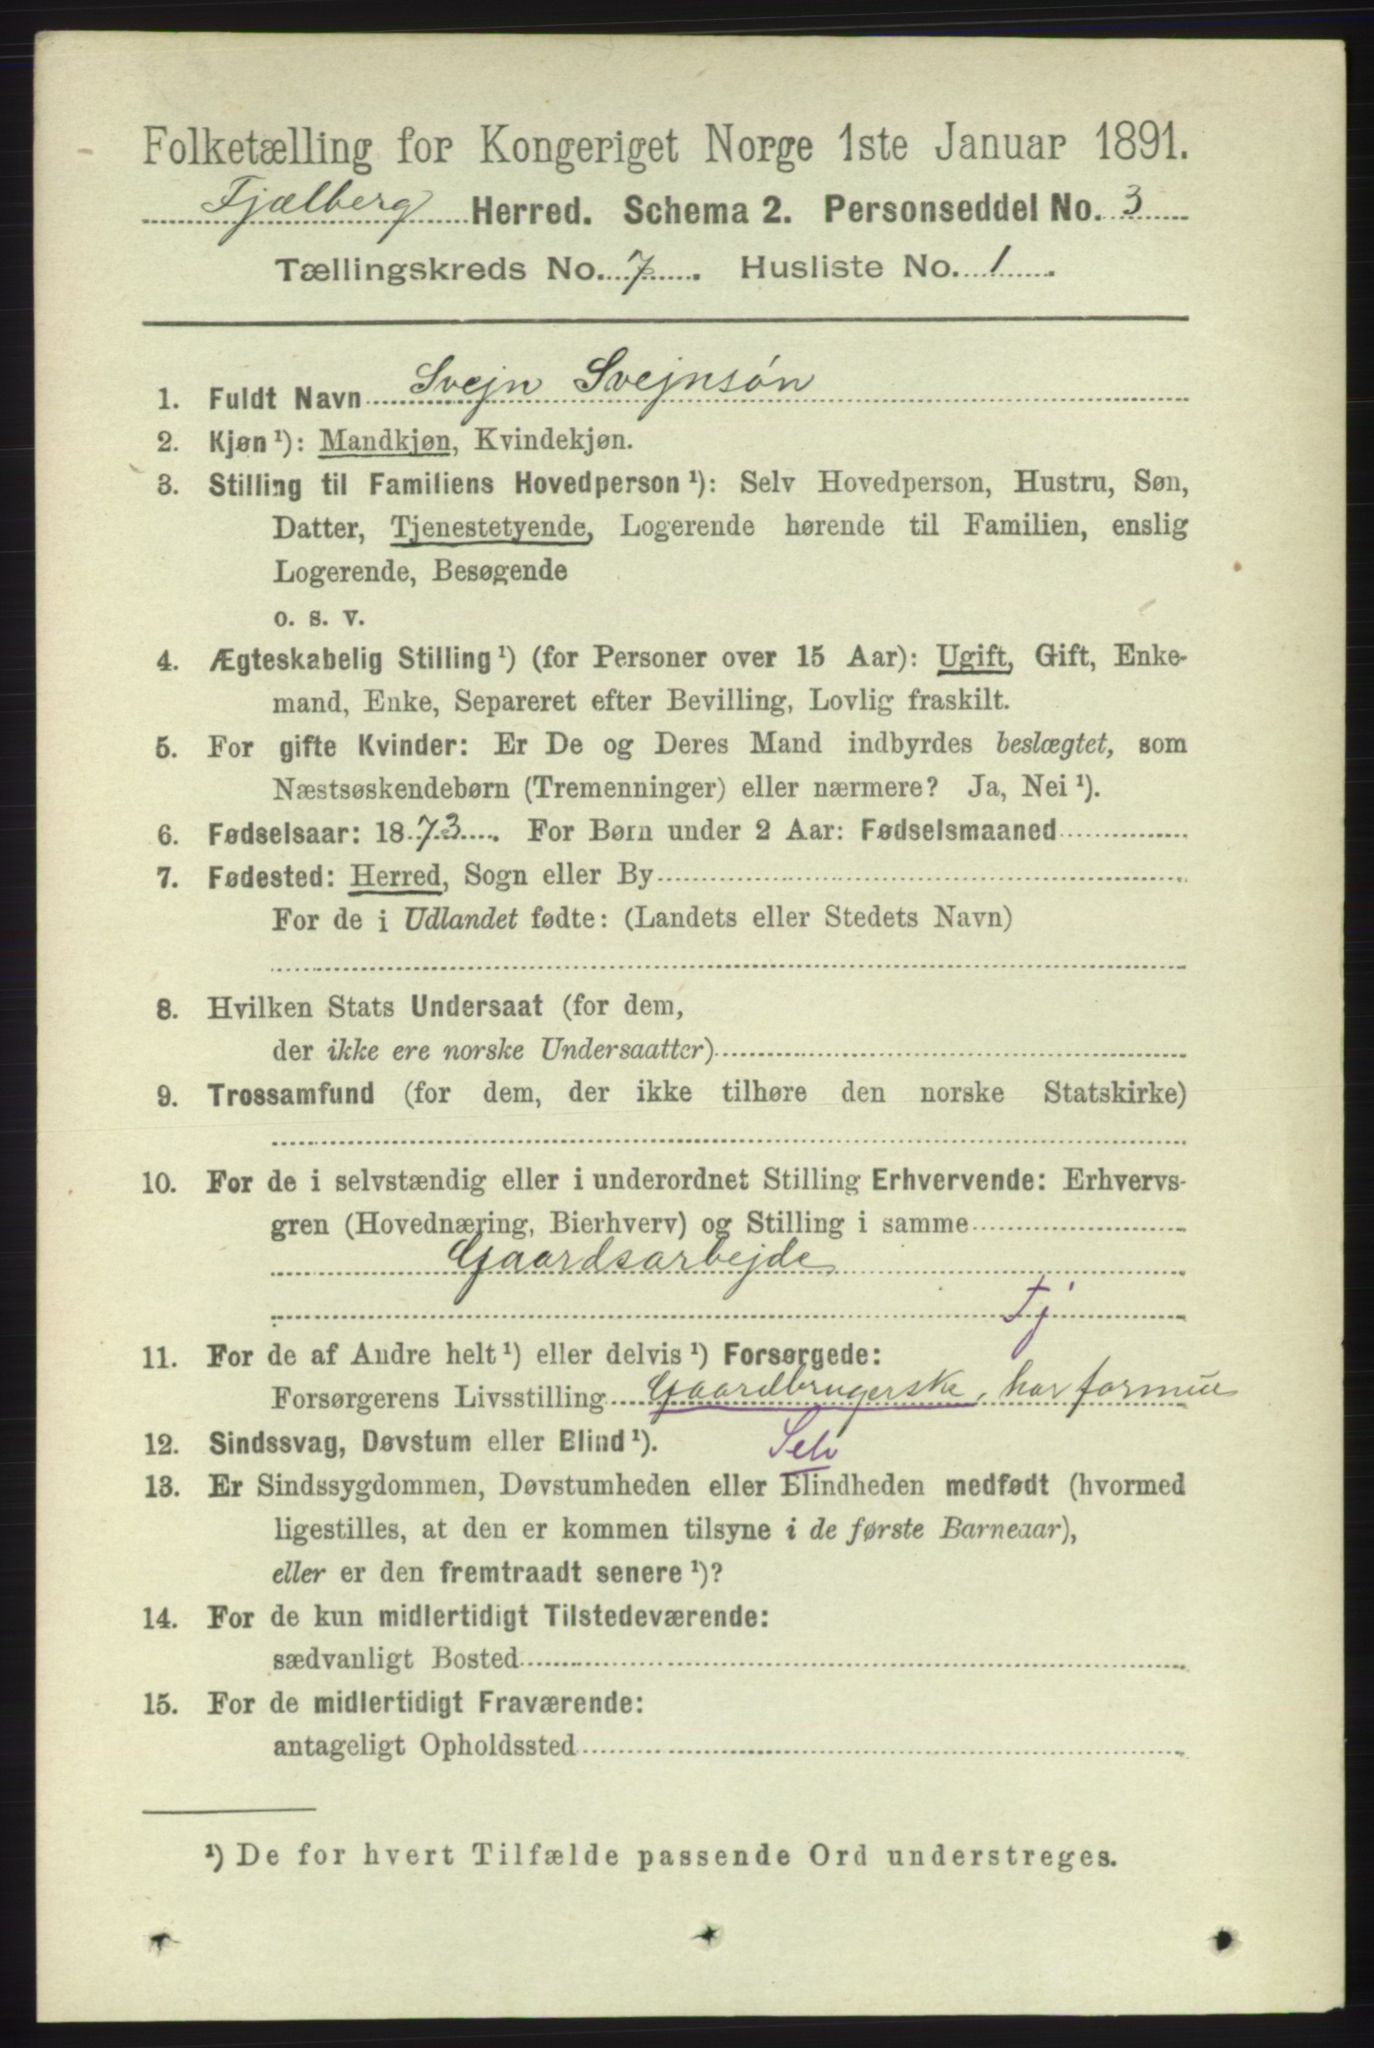 Folketælling for Kongeriget Norge 1ste Januar 1891.
Fjælberg Herred. Schema 2. Personseddel No. 3
Tællingskreds No. 7. Husliste No. 1.
1. Fuldt Navn Svejn Svejnsøn
2. Kjøn¹): Mandkjøn, Kvindekjøn.
3. Stilling til Familiens Hovedperson¹): Selv Hovedperson, Hustru, Søn,
Datter, Tjenestetyende, Logerende hørende til Familien, enslig
Logerende, Besøgende
o. s. v.
4. Ægteskabelig Stilling¹) (for Personer over 15 Aar): Ugift, Gift, Enke-
mand, Enke, Separeret efter Bevilling, Lovlig fraskilt.
5. For gifte Kvinder: Er De og Deres Mand indbyrdes beslægtet, som
Næstsøskendebørn (Tremenninger) eller nærmere? Ja, Nei¹).
6. Fødselsaar: 1873. For Børn under 2 Aar: Fødselsmaaned
7. Fødested: Herred, Sogn eller By
For de i Udlandet fødte: (Landets eller Stedets Navn)
8. Hvilken Stats Undersaat (for dem,
der ikke ere norske Undersaatter)
9. Trossamfund (for dem, der ikke tilhøre den norske Statskirke)
10. For de i selvstændig eller i underordnet Stilling Erhvervende: Erhvervs-
gren (Hovednæring, Bierhverv) og Stilling i samme
Gaardsarbejde
Tj
11. For de af Andre helt¹) eller delvis¹) Forsørgede:
Forsørgerens Livsstilling Gaardbrugerske, har formue
12. Sindssvag, Døvstum eller Blind¹). Selv
13. Er Sindssygdommen, Døvstumheden eller Blindheden medfødt (hvormed
ligestilles, at den er kommen tilsyne i de første Barneaar),
eller er den fremtraadt senere¹)?
14. For de kun midlertidigt Tilstedeværende:
sædvanligt Bosted
15. For de midlertidigt Fraværende:
antageligt Opholdssted
¹) De for hvert Tilfælde passende Ord understreges.